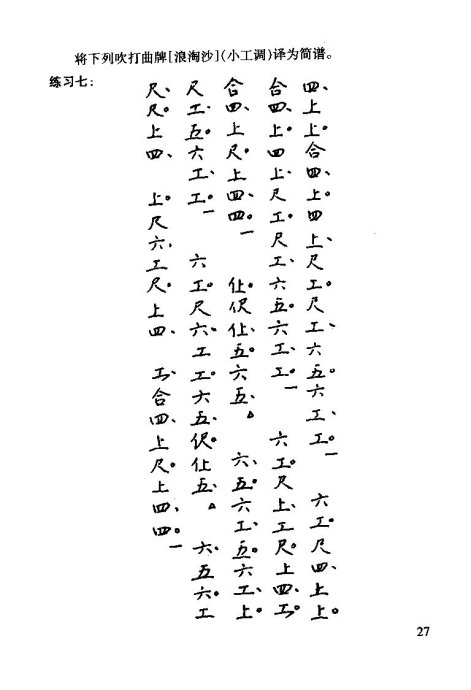 将下列吹打曲牌[浪淘沙](小工调)译为简谱。
练习七：
四、上上。合四、上。四上、尺工。尺工、六五。六工、工。一六工。尺四、上上。
合四、上。四上、尺工。尺工、六五。六工、工。一六工。尺上、工尺。上四、工。
合四、上尺。上四、四。一仩。伬仩、五。六五、△六、五。六工、五。六工、上。
尺工、五。六工、工。一六工。尺六、工工。六五、伬。仩五、△六、五六。工
尺、尺。上四、上。尺六、工尺。上四、工、合四、上尺。上四、四。一
27